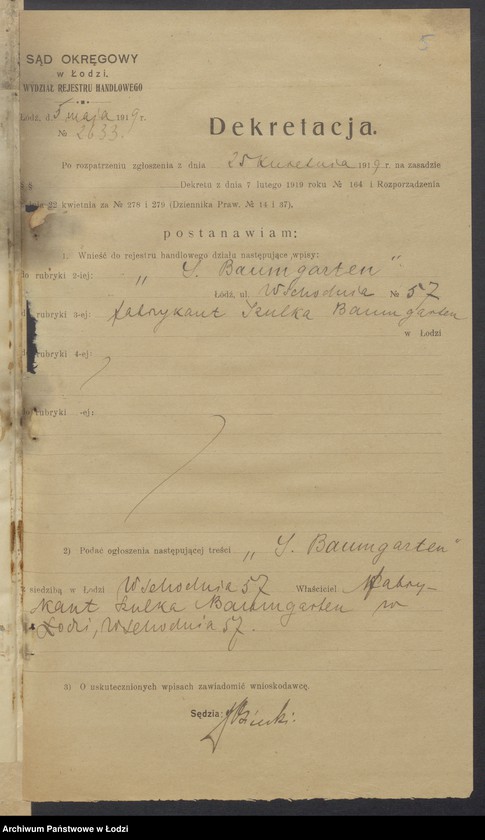 5
SĄD OKRĘGOWY
w Łodzi,
WYDZIAŁ REJESTRU HANDLOWEGO
Łódź, d. 5 maja 1919 r.
№ 2633.
Dekretacja.
Po rozpatrzeniu zgłoszenia z dnia 25 kwietnia 1919 r. na zasadzie
Dekretu z dnia 7 lutego 1919 roku № 164 i Rozporządzenia
22 kwietnia za № 278 i 279 (Dziennika Praw. № 14 i 37),
postanawiam:
1. Wnieść do rejestru handlowego działu następujące wpisy:
do rubryki 2-iej: „S. Baumgarten"
Łódź, ul. Wschodnia № 57
do rubryki 3-ej: fabrykant Szulka Baumgarten
w Łodzi
do rubryki 4-ej:
do rubryki -ej:
2) Podać ogłoszenia następującej treści „S. Baumgarten"
z siedzibą w Łodzi Wschodnia 57 Właściciel: fabry-
kant Szulka Baumgarten w
Łodzi, Wschodnia 57.
3) O uskutecznionych wpisach zawiadomić wnioskodawcę.
Sędzia:
Archiwum Państwowe w Łodzi